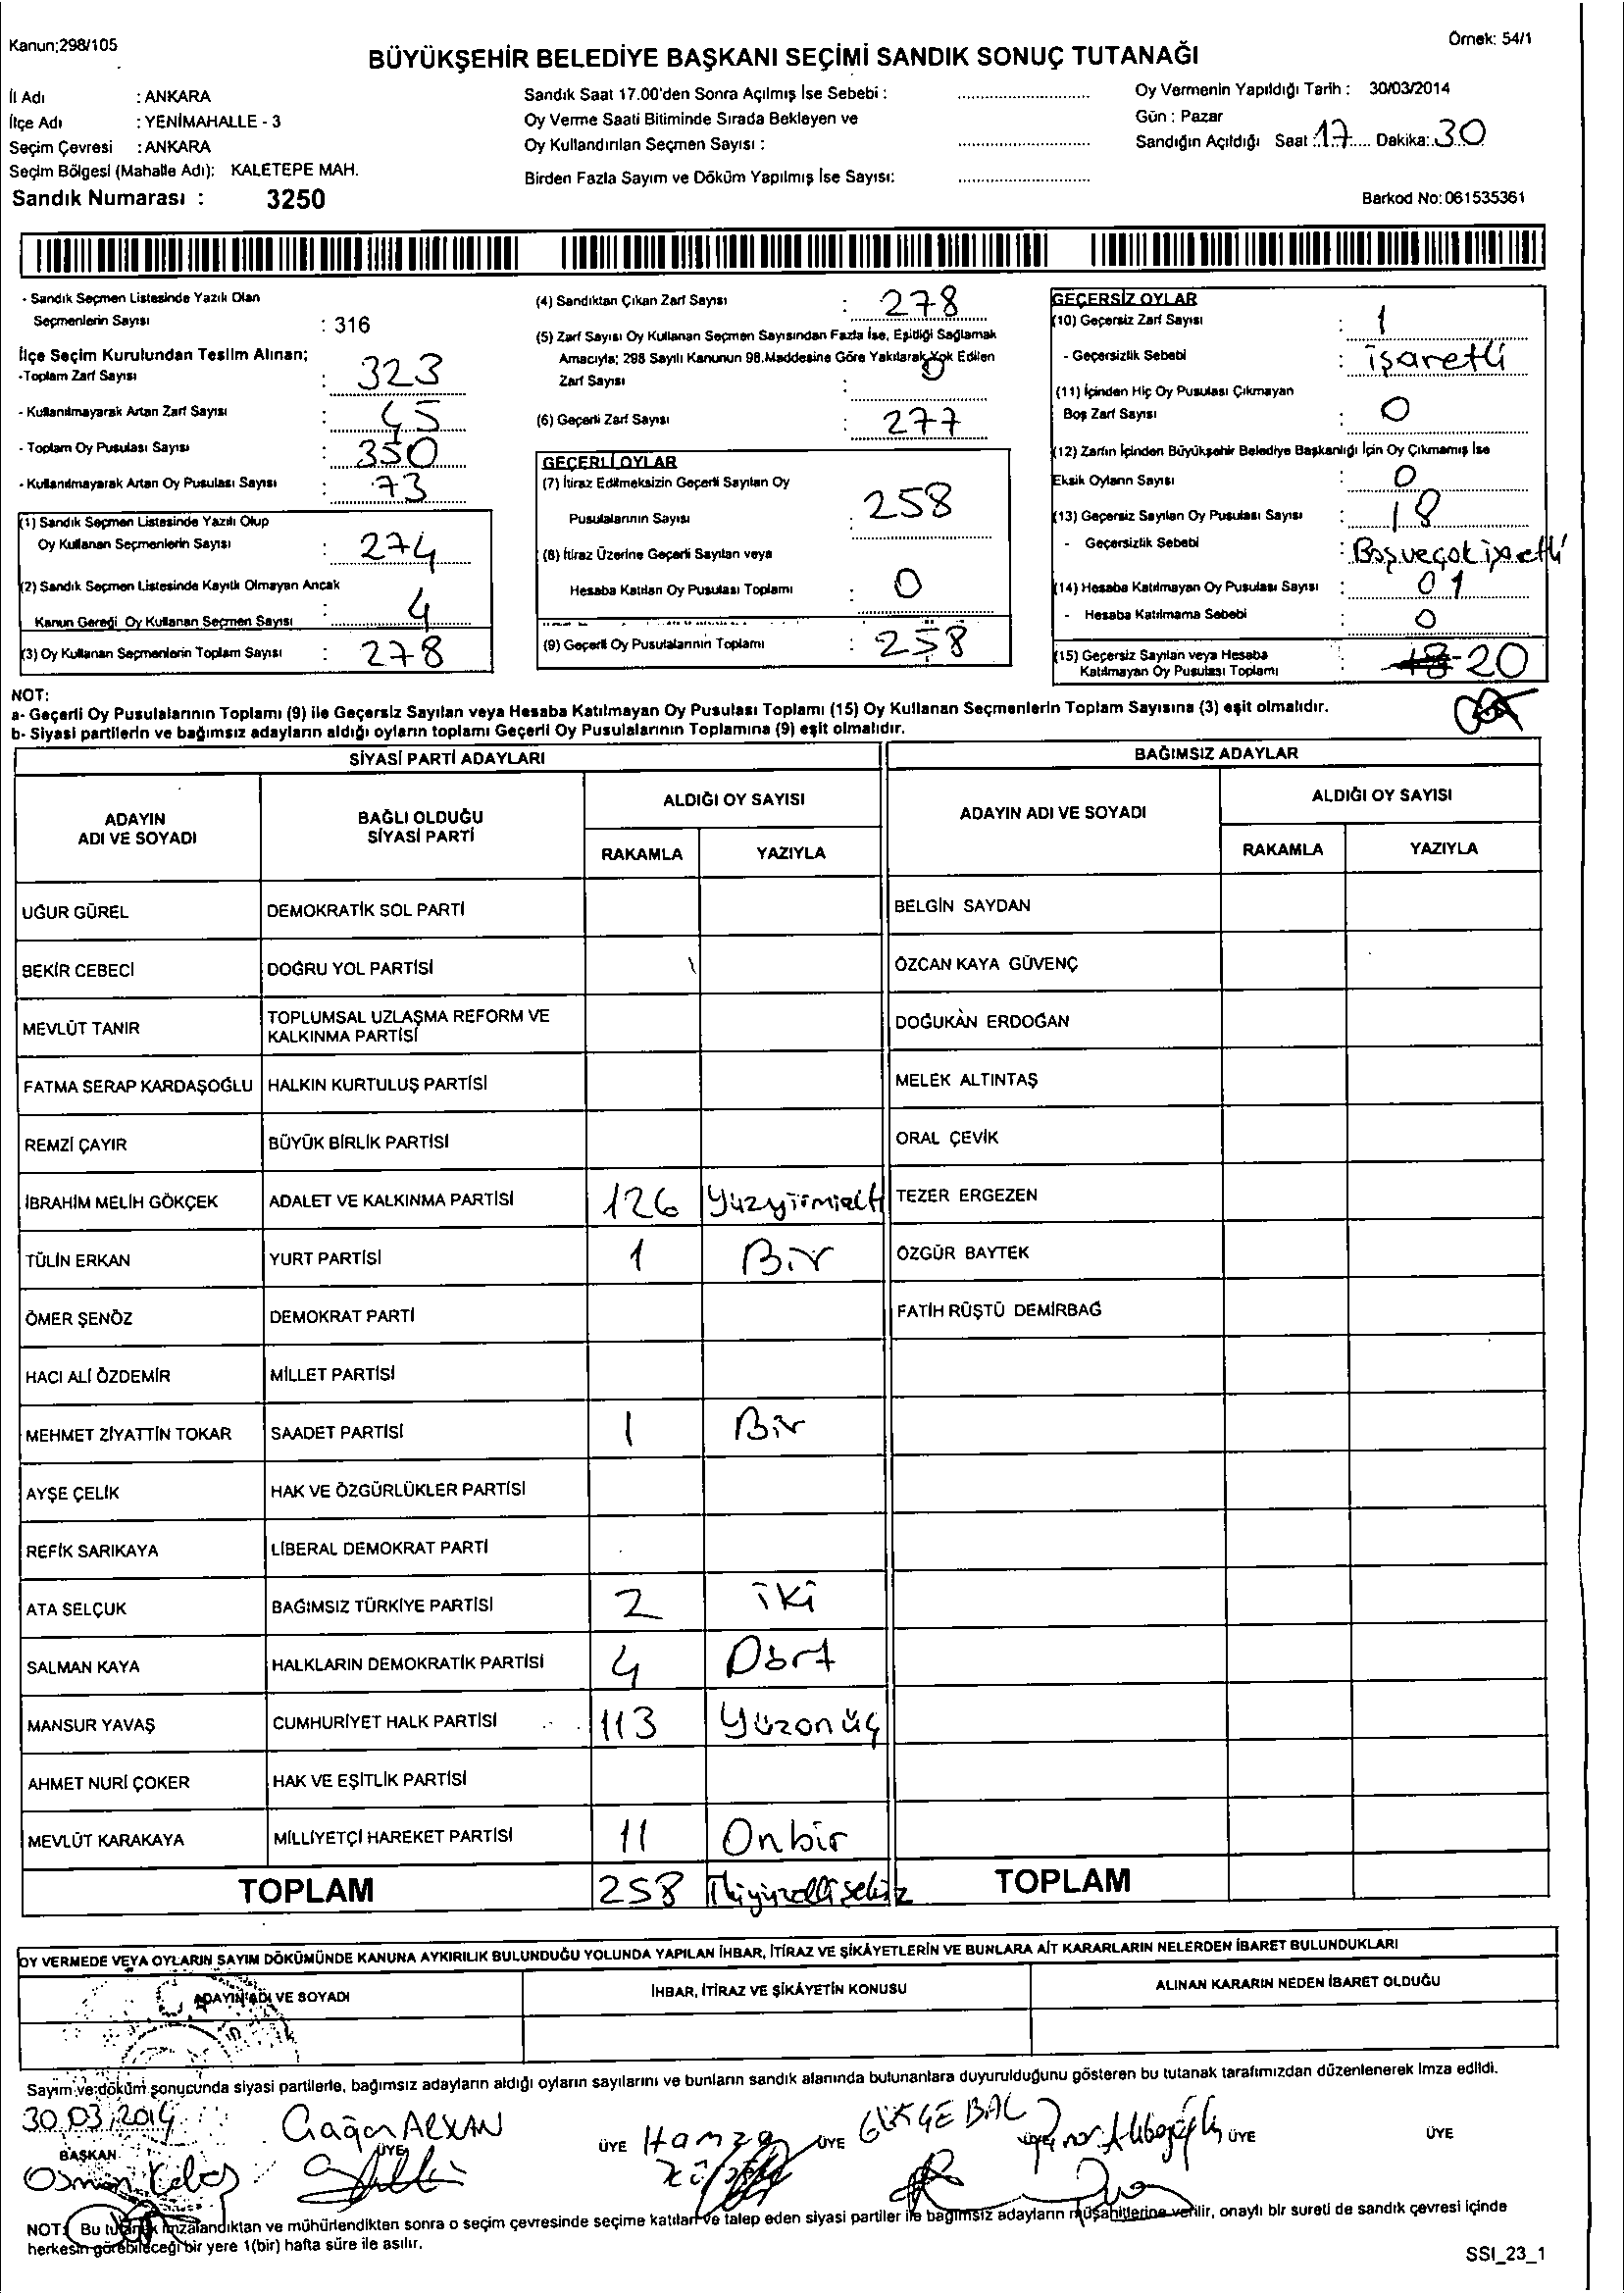 Kanun;298/105
Örnek: 54/1
BÜYÜKŞEHİR BELEDİYE BAŞKANI SEÇİMİ SANDIK SONUÇ TUTANAĞI
İl Adı : ANKARA
İlçe Adı : YENİMAHALLE - 3
Seçim Çevresi : ANKARA
Seçim Bölgesi (Mahalle Adı): KALETEPE MAH.
Sandık Numarası : 3250
Sandık Saat 17.00'den Sonra Açılmış İse Sebebi :
Oy Verme Saati Bitiminde Sırada Bekleyen ve
Oy Kullandırılan Seçmen Sayısı :
Birden Fazla Sayım ve Döküm Yapılmış İse Sayısı:
Oy Vermenin Yapıldığı Tarih : 30/03/2014
Gün : Pazar
Sandığın Açıldığı Saat : 17 Dakika: 30
Barkod No: 061535361
- Sandık Seçmen Listesinde Yazılı Olan
Seçmenlerin Sayısı : 316
İlçe Seçim Kurulundan Teslim Alınan;
-Toplam Zarf Sayısı : 323
- Kullanılmayarak Artan Zarf Sayısı : 45
- Toplam Oy Pusulası Sayısı : 350
- Kullanılmayarak Artan Oy Pusulası Sayısı : 73
(1) Sandık Seçmen Listesinde Yazılı Olup
Oy Kullanan Seçmenlerin Sayısı : 274
(2) Sandık Seçmen Listesinde Kayıtlı Olmayan Ancak
Kanun Gereği Oy Kullanan Seçmen Sayısı : 4
(3) Oy Kullanan Seçmenlerin Toplam Sayısı : 278
(4) Sandıktan Çıkan Zarf Sayısı : 278
(5) Zarf Sayısı Oy Kullanan Seçmen Sayısından Fazla İse, Eşitliği Sağlamak
Amacıyla; 298 Sayılı Kanunun 98.Maddesine Göre Yakılarak Yok Edilen
Zarf Sayısı : 0
(6) Geçerli Zarf Sayısı : 277
GEÇERLİ OYLAR
(7) İtiraz Edilmeksizin Geçerli Sayılan Oy
Pusulalarının Sayısı : 258
(8) İtiraz Üzerine Geçerli Sayılan veya
Hesaba Katılan Oy Pusulası Toplamı : 0
(9) Geçerli Oy Pusulalarının Toplamı : 258
GEÇERSİZ OYLAR
(10) Geçersiz Zarf Sayısı : 1
- Geçersizlik Sebebi : işaretli
(11) İçinden Hiç Oy Pusulası Çıkmayan
Boş Zarf Sayısı : 0
(12) Zarfın İçinden Büyükşehir Belediye Başkanlığı İçin Oy Çıkmamış İse
Eksik Oyların Sayısı : 0
(13) Geçersiz Sayılan Oy Pusulası Sayısı : 18
- Geçersizlik Sebebi : Boş ve çok işaretli
(14) Hesaba Katılmayan Oy Pusulası Sayısı : 01
- Hesaba Katılmama Sebebi : 0
(15) Geçersiz Sayılan veya Hesaba
Katılmayan Oy Pusulası Toplamı : 18 20
NOT:
a- Geçerli Oy Pusulalarının Toplamı (9) ile Geçersiz Sayılan veya Hesaba Katılmayan Oy Pusulası Toplamı (15) Oy Kullanan Seçmenlerin Toplam Sayısına (3) eşit olmalıdır.
b- Siyasi partilerin ve bağımsız adayların aldığı oyların toplamı Geçerli Oy Pusulalarının Toplamına (9) eşit olmalıdır.
SİYASİ PARTİ ADAYLARI
BAĞIMSIZ ADAYLAR
ADAYIN ADI VE SOYADI
BAĞLI OLDUĞU SİYASİ PARTİ
ALDIĞI OY SAYISI
RAKAMLA YAZIYLA
ADAYIN ADI VE SOYADI
ALDIĞI OY SAYISI
RAKAMLA YAZIYLA
UĞUR GÜREL DEMOKRATİK SOL PARTİ BELGİN SAYDAN
BEKİR CEBECİ DOĞRU YOL PARTİSİ ÖZCAN KAYA GÜVENÇ
MEVLÜT TANIR TOPLUMSAL UZLAŞMA REFORM VE KALKINMA PARTİSİ DOĞUKAN ERDOĞAN
FATMA SERAP KARDAŞOĞLU HALKIN KURTULUŞ PARTİSİ MELEK ALTINTAŞ
REMZİ ÇAYIR BÜYÜK BİRLİK PARTİSİ ORAL ÇEVİK
İBRAHİM MELİH GÖKÇEK ADALET VE KALKINMA PARTİSİ 126 Yüzyirmialtı TEZER ERGEZEN
TÜLİN ERKAN YURT PARTİSİ 1 Bir ÖZGÜR BAYTEK
ÖMER ŞENÖZ DEMOKRAT PARTİ FATİH RÜŞTÜ DEMİRBAĞ
HACI ALİ ÖZDEMİR MİLLET PARTİSİ
MEHMET ZİYATTİN TOKAR SAADET PARTİSİ 1 Bir
AYŞE ÇELİK HAK VE ÖZGÜRLÜKLER PARTİSİ
REFİK SARIKAYA LİBERAL DEMOKRAT PARTİ
ATA SELÇUK BAĞIMSIZ TÜRKİYE PARTİSİ 2 iki
SALMAN KAYA HALKLARIN DEMOKRATİK PARTİSİ 4 Dört
MANSUR YAVAŞ CUMHURİYET HALK PARTİSİ 113 Yüzonüç
AHMET NURİ ÇOKER HAK VE EŞİTLİK PARTİSİ
MEVLÜT KARAKAYA MİLLİYETÇİ HAREKET PARTİSİ 11 Onbir
TOPLAM 258 İkiyüzellisekiz TOPLAM
OY VERMEDE VEYA OYLARIN SAYIM DÖKÜMÜNDE KANUNA AYKIRILIK BULUNDUĞU YOLUNDA YAPILAN İHBAR, İTİRAZ VE ŞİKÂYETLERİN VE BUNLARA AİT KARARLARIN NELERDEN İBARET BULUNDUKLARI
ADAYIN ADI VE SOYADI İHBAR, İTİRAZ VE ŞİKÂYETİN KONUSU ALINAN KARARIN NEDEN İBARET OLDUĞU
Sayım ve döküm sonucunda siyasi partilerle, bağımsız adayların aldığı oyların sayılarını ve bunların sandık alanında bulunanlara duyurulduğunu gösteren bu tutanak tarafımızdan düzenlenerek imza edildi.
30.03.2014 Çağan ALKAN Hamza GÖKÇE BAL
BAŞKAN ÜYE ÜYE ÜYE ÜYE ÜYE ÜYE
Osman
NOT: Bu tutanak imzalandıktan ve mühürlendikten sonra o seçim çevresinde seçime katılan ve talep eden siyasi partiler ile bağımsız adayların müşahitlerine verilir, onaylı bir sureti de sandık çevresi içinde
herkesin görebileceği bir yere 1(bir) hafta süre ile asılır.
SSI_23_1